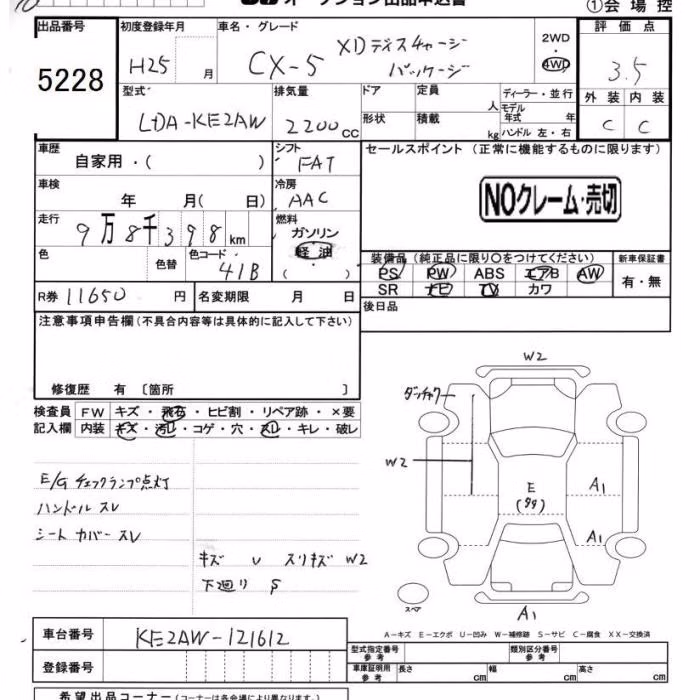 オークション出品申込書
①会場控
出品番号
5228
初度登録年月
H25 月
車名・グレード
CX-5 XDディスチャージ
パッケージ
2WD
・
4WD
評価点
3.5
外装 内装
C C
型式
LDA-KE2AW
排気量
2200cc
ドア 定員 人
形状 積載 kg
ディーラー・並行
モデル
年式 年
ハンドル 左・右
車歴
自家用・( )
シフト
FAT
セールスポイント (正常に機能するものに限ります)
NOクレーム・売切
車検
年 月( 日)
冷房
AAC
走行
9万8千398km
燃料
ガソリン
軽油
( )
色
色替
色コード
41B
装備品(純正品に限り○をつけてください)
PS PW ABS エアB AW
SR ナビ TV カワ
新車保証書
有・無
R券 11650 円
名変期限 月 日
後日品
注意事項申告欄(不具合内容等は具体的に記入して下さい)
修復歴 有 〔箇所 〕
検査員
記入欄
FW キズ・飛石・ヒビ割・リペア跡・×要
内装 キズ・汚レ・コゲ・穴・スレ・キレ・破レ
E/G チェックランプ点灯
ハンドル スレ
シート カバー スレ
キズ U スリキズ W2
下廻り S
W2
W2
E
A1
A1
A1
スペア
A-キズ E-エクボ U-凹み W-補修跡 S-サビ C-腐食 XX-交換済
車台番号 KE2AW-121612
登録番号
型式指定番号
参考
類別区分番号
参考
車庫証明用
参考
長さ cm 幅 cm 高さ cm
希望出品コーナー(コーナーは各会場により異なります。)